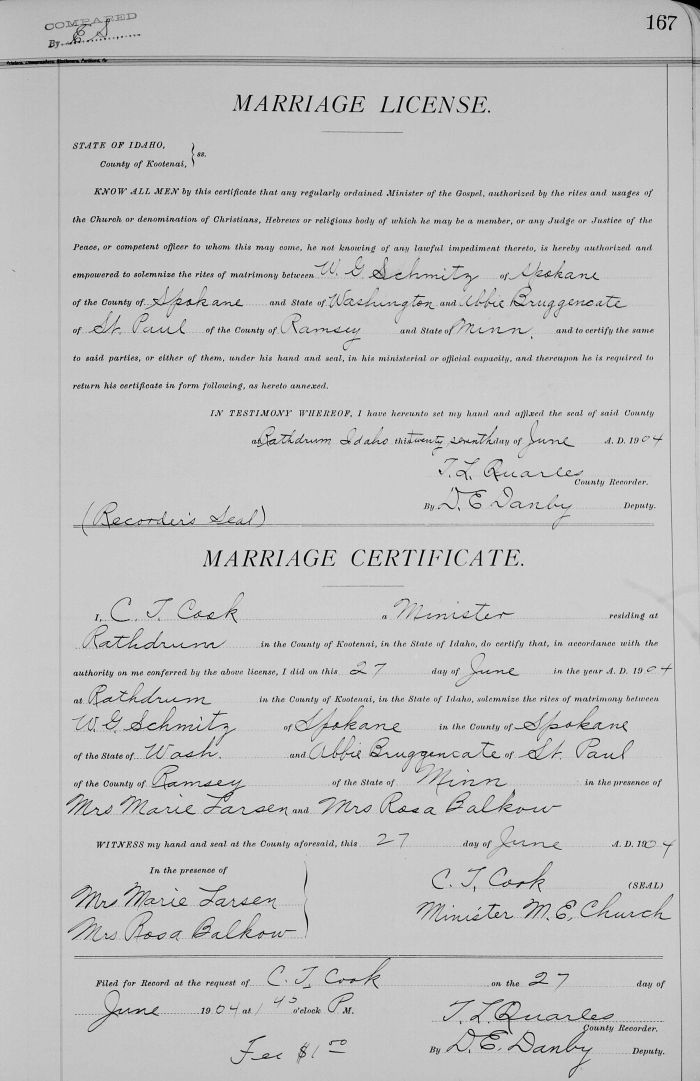 COMPARED
By E S
167
MARRIAGE LICENSE.
STATE OF IDAHO,
County of Kootenai, } ss.
KNOW ALL MEN by this certificate that any regularly ordained Minister of the Gospel, authorized by the rites and usages of
the Church or denomination of Christians, Hebrews or religious body of which he may be a member, or any Judge or Justice of the
Peace, or competent officer to whom this may come, he not knowing of any lawful impediment thereto, is hereby authorized and
empowered to solemnize the rites of matrimony between W. G Schmitz of Spokane
of the County of Spokane and State of Washington and Abbie Bruggencate
of St. Paul of the County of Ramsey and State of Minn. and to certify the same
to said parties, or either of them, under his hand and seal, in his ministerial or official capacity, and thereupon he is required to
return his certificate in form following, as hereto annexed.
IN TESTIMONY WHEREOF, I have hereunto set my hand and affixed the seal of said County
at Rathdrum Idaho this twenty seventh day of June A. D. 1904
T. L. Quarles
County Recorder.
By D. E Danby Deputy.
(Recorder's Seal)
MARRIAGE CERTIFICATE.
I, C. T. Cook a Minister residing at
Rathdrum in the County of Kootenai, in the State of Idaho, do certify that, in accordance with the
authority on me conferred by the above license, I did on this 27 day of June in the year A. D. 1904
at Rathdrum in the County of Kootenai, in the State of Idaho, solemnize the rites of matrimony between
W. G. Schmitz of Spokane in the County of Spokane
of the State of Wash. and Abbie Bruggencate of St. Paul
of the County of Ramsey of the State of Minn in the presence of
Mrs Marie Larsen and Mrs Rosa Balkow
WITNESS my hand and seal at the County aforesaid, this 27 day of June A. D. 1904
In the presence of
C. T. Cook (SEAL)
Mrs Marie Larsen
Minister M. E. Church
Mrs Rosa Balkow
Filed for Record at the request of C. T. Cook on the 27 day of
June 1904 at 1 45 o'clock P. M.
T. L. Quarles
County Recorder.
Fee $1.00
By D. E. Danby Deputy.